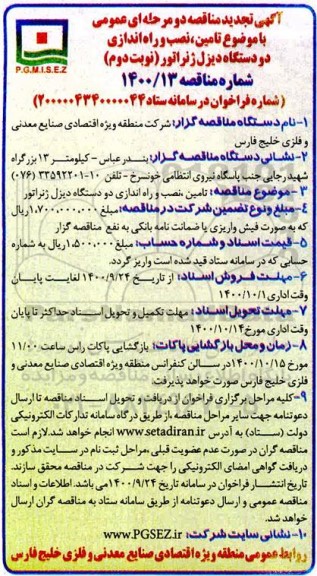 آگهی تجدید مناقصه دو مرحله ای عمومی
با موضوع تامین، نصب و راه اندازی
دو دستگاه دیزل ژنراتور (نوبت دوم)
شماره مناقصه ۱۴۰۰/۱۳
(شماره فراخوان در سامانه ستاد ۲۰۰۰۰۰۴۳۴۰۰۰۰۰۴۴)
P.G.M.I.S.E.Z
۱-نام دستگاه مناقصه گزار: شرکت منطقه ویژه اقتصادی صنایع معدنی
و فلزی خلیج فارس
۲-نشانی دستگاه مناقصه گزار: بندرعباس - کیلومتر ۱۳ بزرگراه
شهید رجایی جنب پاسگاه نیروی انتظامی خونسرخ - تلفن ۱۰-۳۳۵۹۲۲۰۱ (۰۷۶)
۳-موضوع مناقصه: تامین ،نصب و راه اندازی دو دستگاه دیزل ژنراتور
۴-مبلغ ونوع تضمین شرکت در مناقصه: مبلغ ۱،۷۰۰،۰۰۰،۰۰۰ ریال
که به صورت فیش واریزی یا ضمانت نامه بانکی به نفع مناقصه گزار
۵-قیمت اسناد و شماره حساب: مبلغ ۱،۵۰۰،۰۰۰ ریال به شماره
حسابی که در سامانه ستاد قید شده است واریز گردد.
۶-مهلت فروش اسناد: از تاریخ ۱۴۰۰/۹/۲۴ لغایت پایان
وقت اداری ۱۴۰۰/۱۰/۱
۷-مهلت تحویل اسناد: مهلت تکمیل و تحویل اسناد حداکثر تا پایان
وقت اداری مورخ ۱۴۰۰/۱۰/۱۴
۸-زمان و محل بازگشایی پاکات: بازگشایی پاکات راس ساعت ۱۱/۰۰
مورخ ۱۴۰۰/۱۰/۱۵ در سالن کنفرانس منطقه ویژه اقتصادی صنایع معدنی و
فلزی خلیج فارس صورت خواهد پذیرفت.
۹-کلیه مراحل برگزاری فراخوان از دریافت و تحویل اسناد مناقصه تا ارسال
دعوتنامه جهت سایر مراحل مناقصه ،از طریق درگاه سامانه تدارکات الکترونیکی
دولت (ستاد) به آدرس www.setadiran.ir انجام خواهد شد. لازم است
مناقصه گران در صورت عدم عضویت قبلی ،مراحل ثبت نام در سایت مذکور و
دریافت گواهی امضای الکترونیکی را جهت شرکت در مناقصه محقق سازند.
تاریخ انتشار فراخوان در سامانه تاریخ ۱۴۰۰/۹/۲۴ می باشد. اطلاعات و اسناد
مناقصه عمومی و ارسال دعوتنامه از طریق سامانه ستاد به مناقصه گران ارسال
خواهد شد.
۱۰- نشانی سایت شرکت: www.PGSEZ.ir
روابط عمومی منطقه ویژه اقتصادی صنایع معدنی و فلزی خلیج فارس